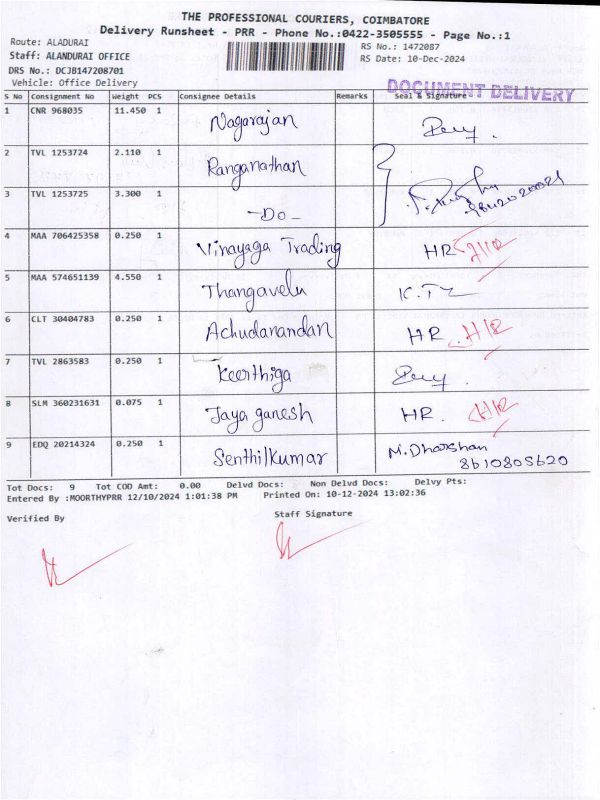 THE PROFESSIONAL COURIERS, COIMBATORE
Delivery Runsheet - PRR - Phone No.:0422-3505555 - Page No.:1
Route: ALADURAI
RS No.: 1472087
Staff: ALANDURAI OFFICE
RS Date: 10-Dec-2024
DRS No.: DCJB147208701
Vehicle: Office Delivery
DOCUMENT DELIVERY
S No Consignment No Weight PCS Consignee Details Remarks Seal & Signature
1 CNR 968035 11.450 1 Nagarajan
2 TVL 1253724 2.110 1 Ranganathan
3 TVL 1253725 3.300 1 -Do-
4 MAA 706425358 0.250 1 Vinayaga Trading HR
5 MAA 574651139 4.550 1 Thangavelu
6 CLT 30404783 0.250 1 Achudanandan HR
7 TVL 2863583 0.250 1 Keerthiga
8 SLM 360231631 0.075 1 Jaya ganesh HR.
9 EDQ 20214324 0.250 1 Senthilkumar M. Dharshan
8610805620
Tot Docs: 9 Tot COD Amt: 0.00 Delvd Docs: Non Delvd Docs: Delvy Pts:
Entered By :MOORTHYPRR 12/10/2024 1:01:38 PM Printed On: 10-12-2024 13:02:36
Verified By Staff Signature